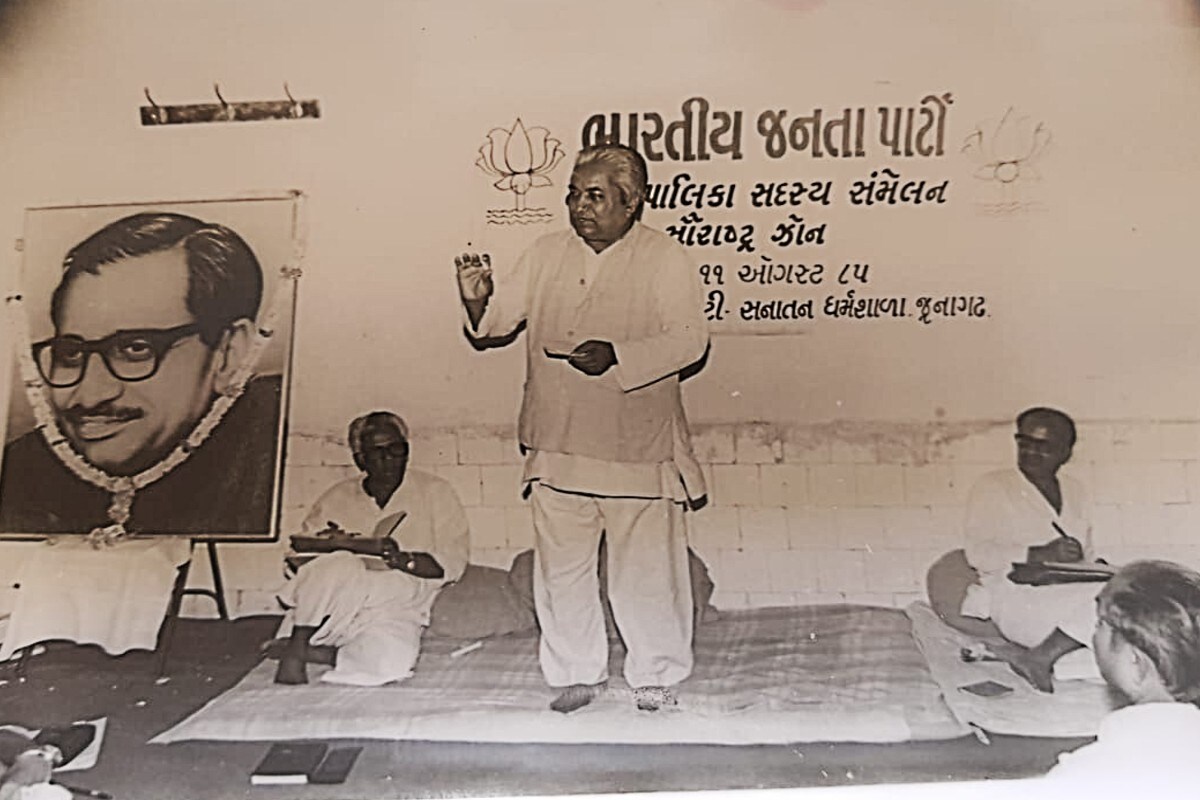 ભારતીય જનતા પાર્ટી
પાલિકા સદસ્ય સંમેલન
સૌરાષ્ટ્ર ઝોન
૧૧ ઓગસ્ટ ૮૫
સનાતન ધર્મશાળા. જૂનાગઢ.